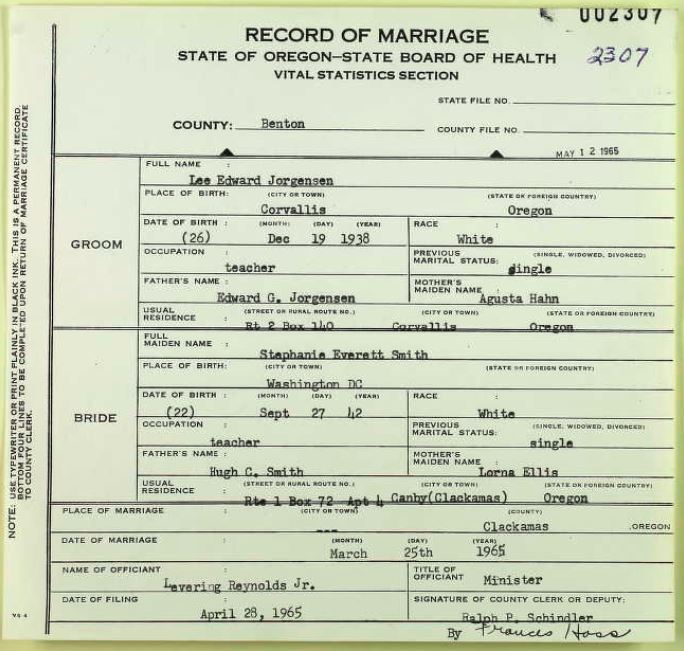 002307
RECORD OF MARRIAGE
2307
STATE OF OREGON—STATE BOARD OF HEALTH
VITAL STATISTICS SECTION
STATE FILE NO.
COUNTY: Benton
COUNTY FILE NO.
MAY 12 1965
NOTE. USE TYPEWRITER OR PRINT PLAINLY IN BLACK INK. THIS IS A PERMANENT RECORD.
BOTTOM FOUR LINES TO BE COMPLETED UPON RETURN OF MARRIAGE CERTIFICATE
TO COUNTY CLERK.
GROOM
FULL NAME :
Lee Edward Jorgensen
PLACE OF BIRTH: (CITY OR TOWN) (STATE OR FOREIGN COUNTRY)
Corvallis Oregon
DATE OF BIRTH : (MONTH) (DAY) (YEAR) RACE :
(26) Dec 19 1938 White
OCCUPATION : PREVIOUS MARITAL STATUS: (SINGLE, WIDOWED, DIVORCED)
teacher single
FATHER'S NAME : MOTHER'S MAIDEN NAME :
Edward G. Jorgensen Agusta Hahn
USUAL RESIDENCE : (STREET OR RURAL ROUTE NO.) (CITY OR TOWN) (STATE OR FOREIGN COUNTRY)
Rt 2 Box 140 Corvallis Oregon
BRIDE
FULL MAIDEN NAME :
Stephanie Everett Smith
PLACE OF BIRTH: (CITY OR TOWN) (STATE OR FOREIGN COUNTRY)
Washington DC
DATE OF BIRTH : (MONTH) (DAY) (YEAR) RACE :
(22) Sept 27 42 White
OCCUPATION : PREVIOUS MARITAL STATUS: (SINGLE, WIDOWED, DIVORCED)
teacher single
FATHER'S NAME : MOTHER'S MAIDEN NAME :
Hugh C. Smith Lorna Ellis
USUAL RESIDENCE : (STREET OR RURAL ROUTE NO.) (CITY OR TOWN) (STATE OR FOREIGN COUNTRY)
Rte 1 Box 72 Apt 4 Canby(Clackamas) Oregon
PLACE OF MARRIAGE : (CITY OR TOWN) (COUNTY)
--- Clackamas ,OREGON
DATE OF MARRIAGE : (MONTH) (DAY) (YEAR)
March 25th 1965
NAME OF OFFICIANT : TITLE OF OFFICIANT :
Levering Reynolds Jr. Minister
DATE OF FILING : SIGNATURE OF COUNTY CLERK OR DEPUTY:
April 28, 1965 Ralph P. Schindler
By Frances Hoss
VS 4